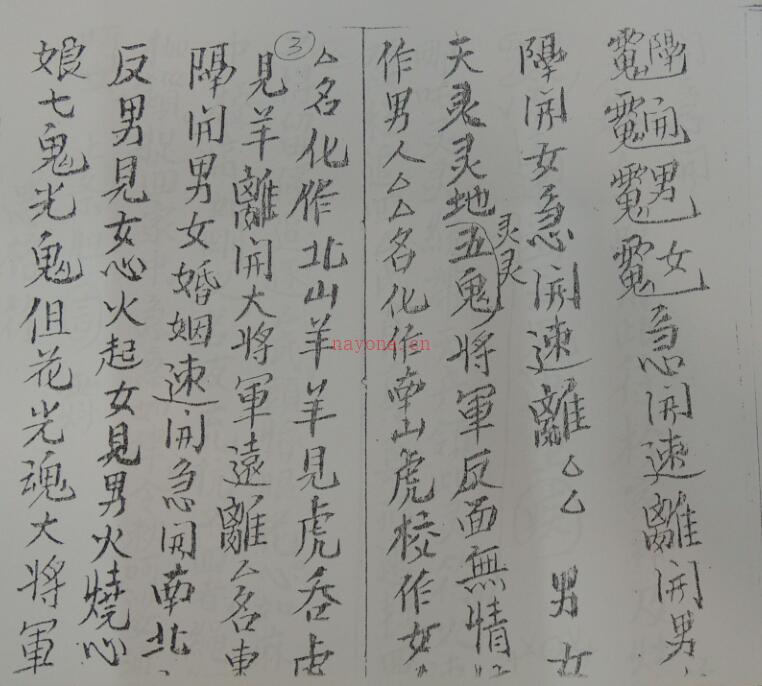 隔開男女急開速離開男
隔開女急開速離△△男女
天灵灵地灵灵五鬼將軍反面無情
作男人△△名化作南山虎校作女
③
△名化作北山羊羊見虎吞虎
見羊離開大將軍遠離△名東
隔開男女婚姻速開急開南北
反男見女心火起女見男火燒心
娘七鬼光鬼但花光魂大將軍
nayona.cn